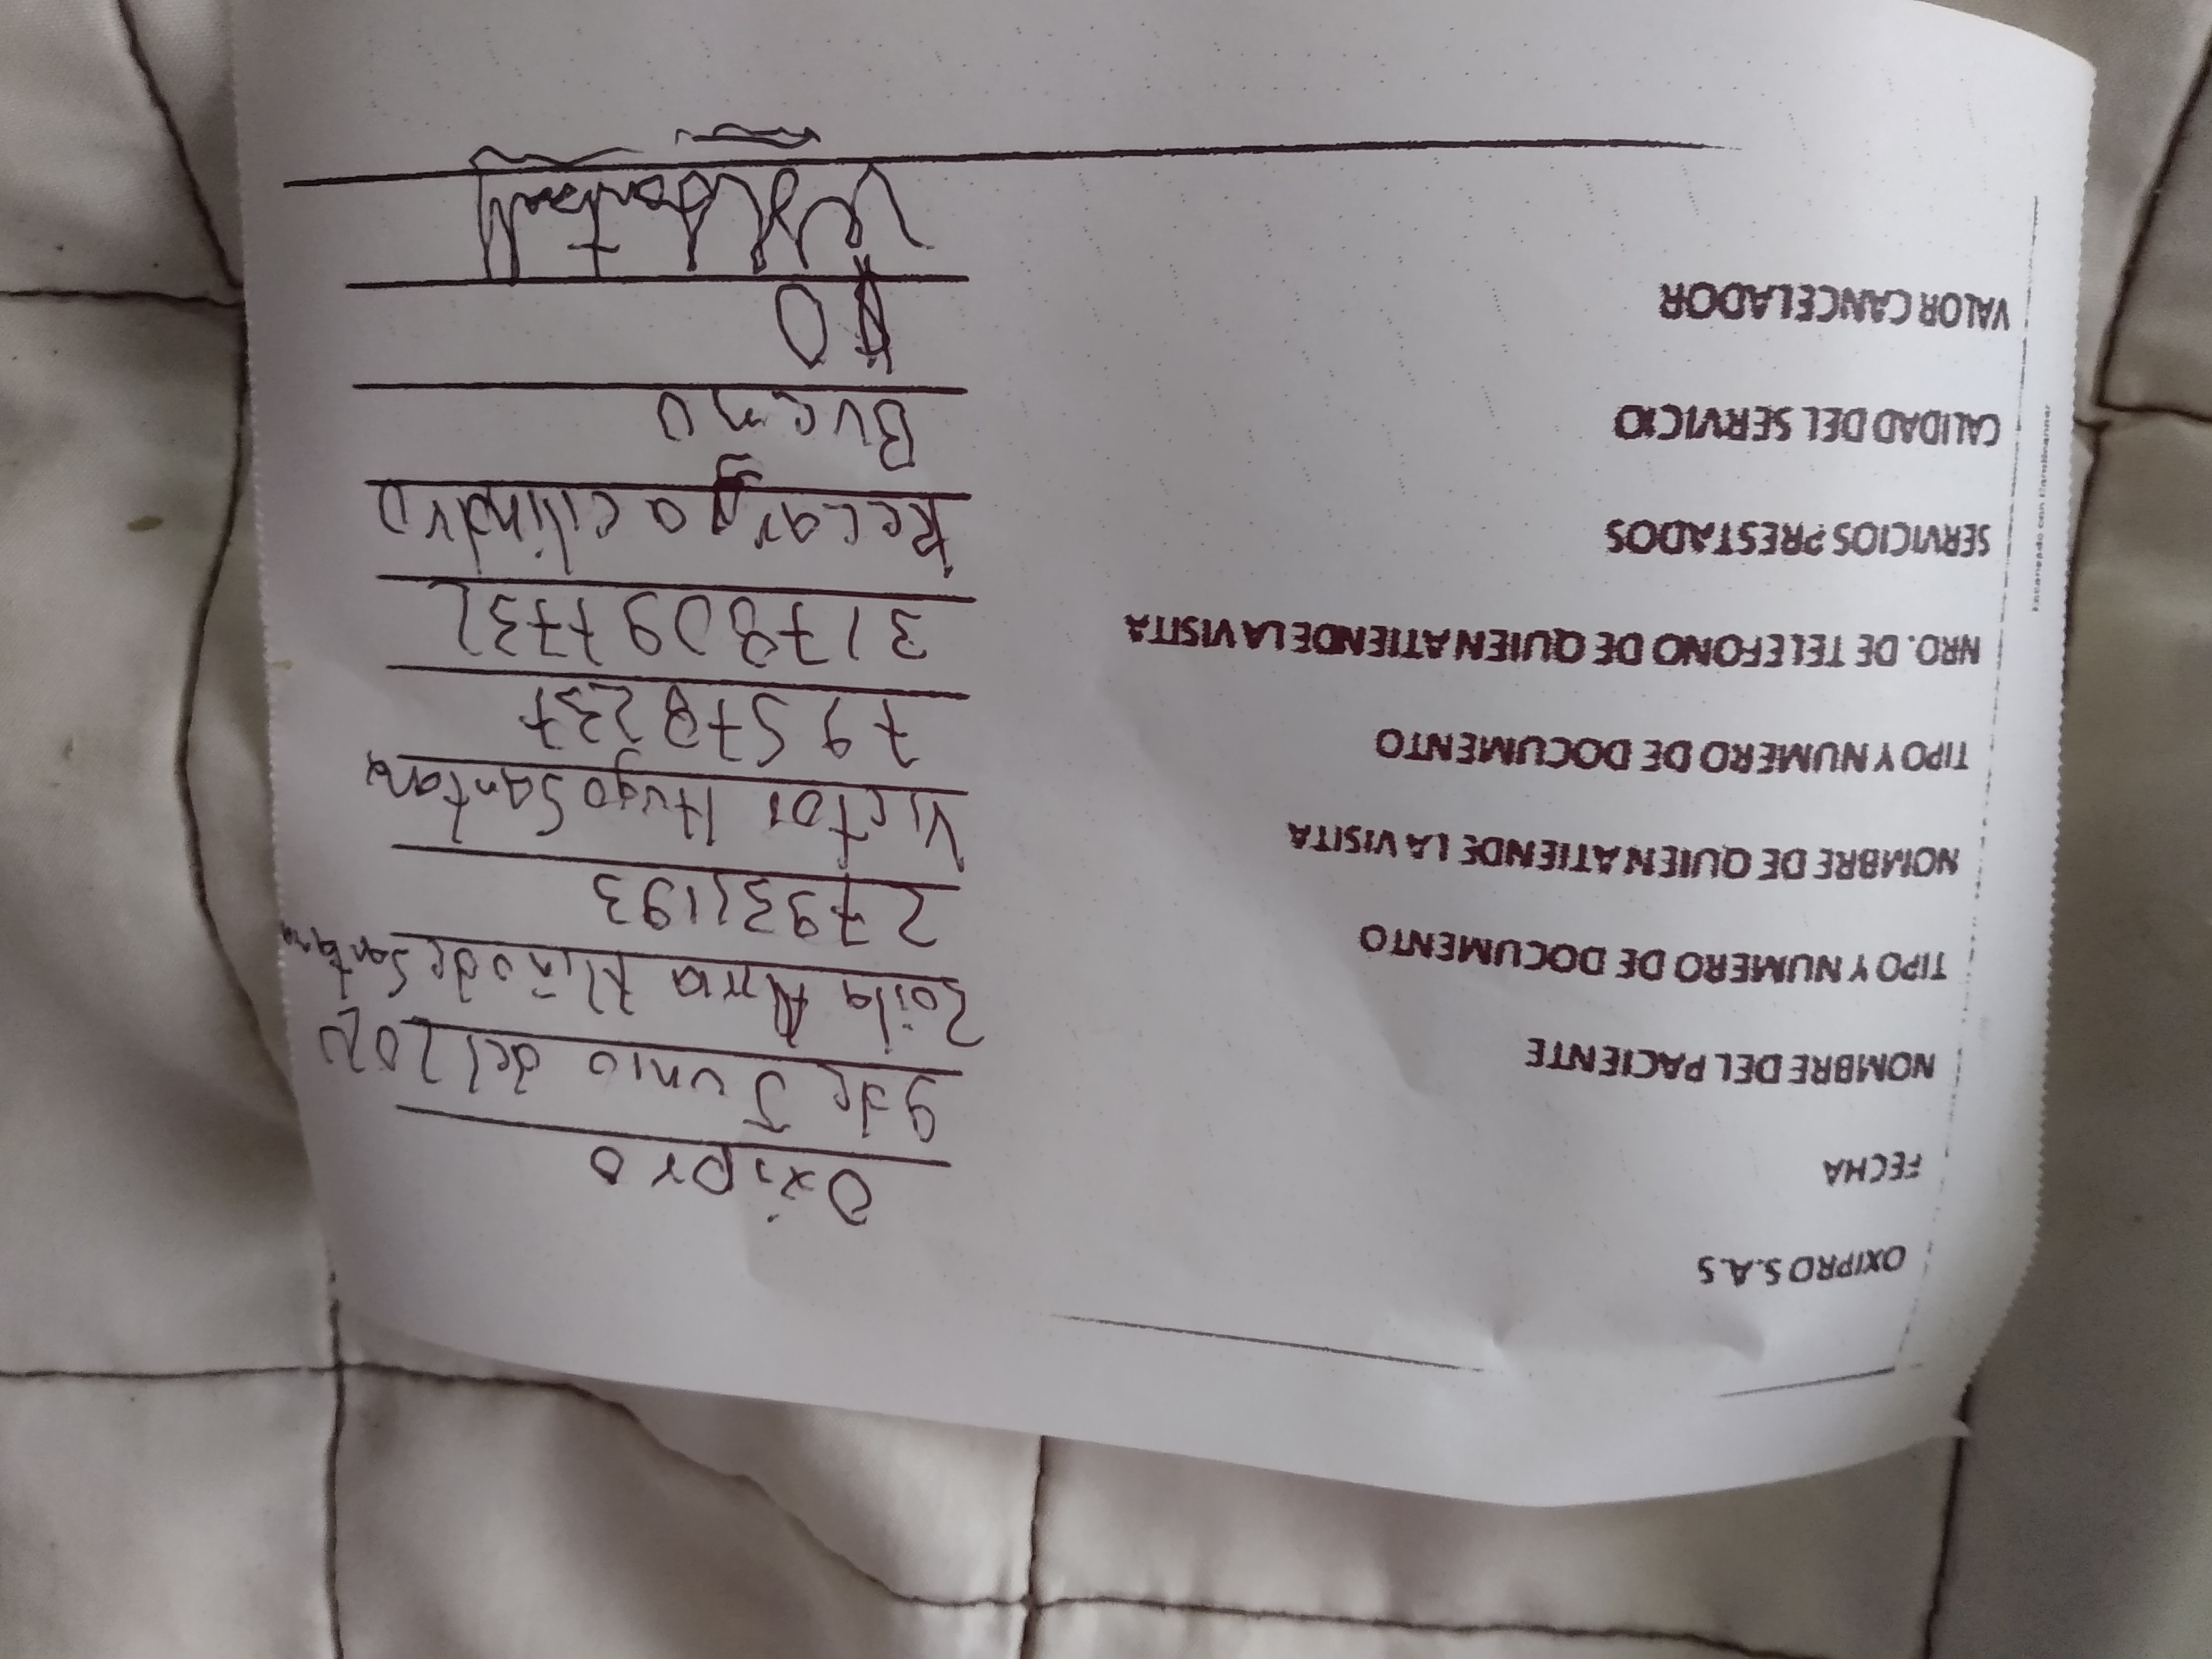 OXIPRO S.A.S Oxipro
FECHA 9 de Junio del 202
NOMBRE DEL PACIENTE Zoila Alma de Santana
TIPO Y NUMERO DE DOCUMENTO 27931193
NOMBRE DE QUIEN ATIENDE LA VISITA Victor Hugo Santana
TIPO Y NUMERO DE DOCUMENTO 79578237
NRO. DE TELEFONO DE QUIEN ATIENDE LA VISITA 3178097732
SERVICIOS PRESTADOS Recarga cilindro
CALIDAD DEL SERVICIO Bueno
VALOR CANCELADOR 0
Escaneado con CamScanner